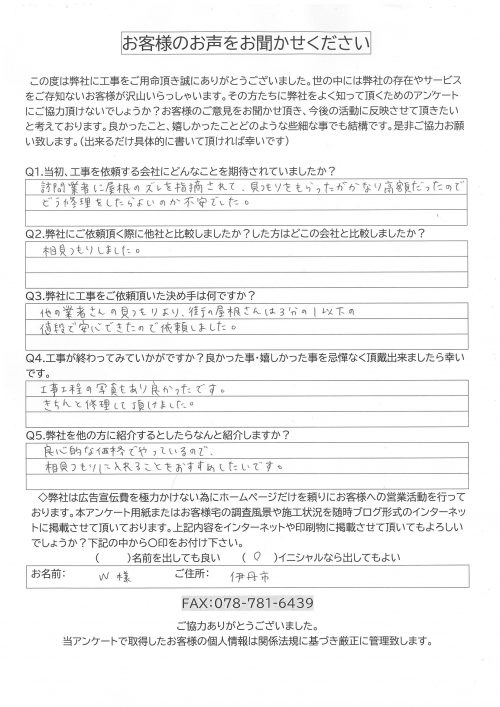 お客様のお声をお聞かせください
この度は弊社に工事をご用命頂き誠にありがとうございました。世の中には弊社の存在やサービス
をご存知ないお客様が沢山いらっしゃいます。その方たちに弊社をよく知って頂くためのアンケート
にご協力頂けないでしょうか？お客様のご意見をお聞かせ頂き、今後の活動に反映させて頂きたい
と考えております。良かったこと、嬉しかったことどのような些細な事でも結構です。是非ご協力お願
い致します。（出来るだけ具体的に書いて頂ければ幸いです）
Q1.当初、工事を依頼する会社にどんなことを期待されていましたか？
訪問業者に屋根のズレを指摘されて、見つもりをもらったがかなり高額だったので
どう修理をしたらよいのか不安でした。
Q2.弊社にご依頼頂く際に他社と比較しましたか？した方はどこの会社と比較しましたか？
相見つもりしました。
Q3.弊社に工事をご依頼頂いた決め手は何ですか？
他の業者さんの見つもりより、街の屋根さんは3分の1以下の
値段で安心できたので依頼しました。
Q4.工事が終わってみていかがですか？良かった事・嬉しかった事を忌憚なく頂戴出来ましたら幸い
です。
工事工程の写真もあり良かったです。
きちんと修理して頂けました。
Q5.弊社を他の方に紹介するとしたらなんと紹介しますか？
良心的な価格でやっているので、
相見つもりに入れることをおすすめしたいです。
◇弊社は広告宣伝費を極力かけない為にホームページだけを頼りにお客様への営業活動を行って
おります。本アンケート用紙またはお客様宅の調査風景や施工状況を随時ブログ形式のインターネッ
トに掲載させて頂いております。上記内容をインターネットや印刷物に掲載させて頂いてもよろしい
でしょうか？下記の中から〇印をお付け下さい。
（　　）名前を出しても良い　（ 〇 ）イニシャルなら出してもよい
お名前： W 様　ご住所： 伊丹市
FAX：078-781-6439
ご協力ありがとうございました。
当アンケートで取得したお客様の個人情報は関係法規に基づき厳正に管理致します。